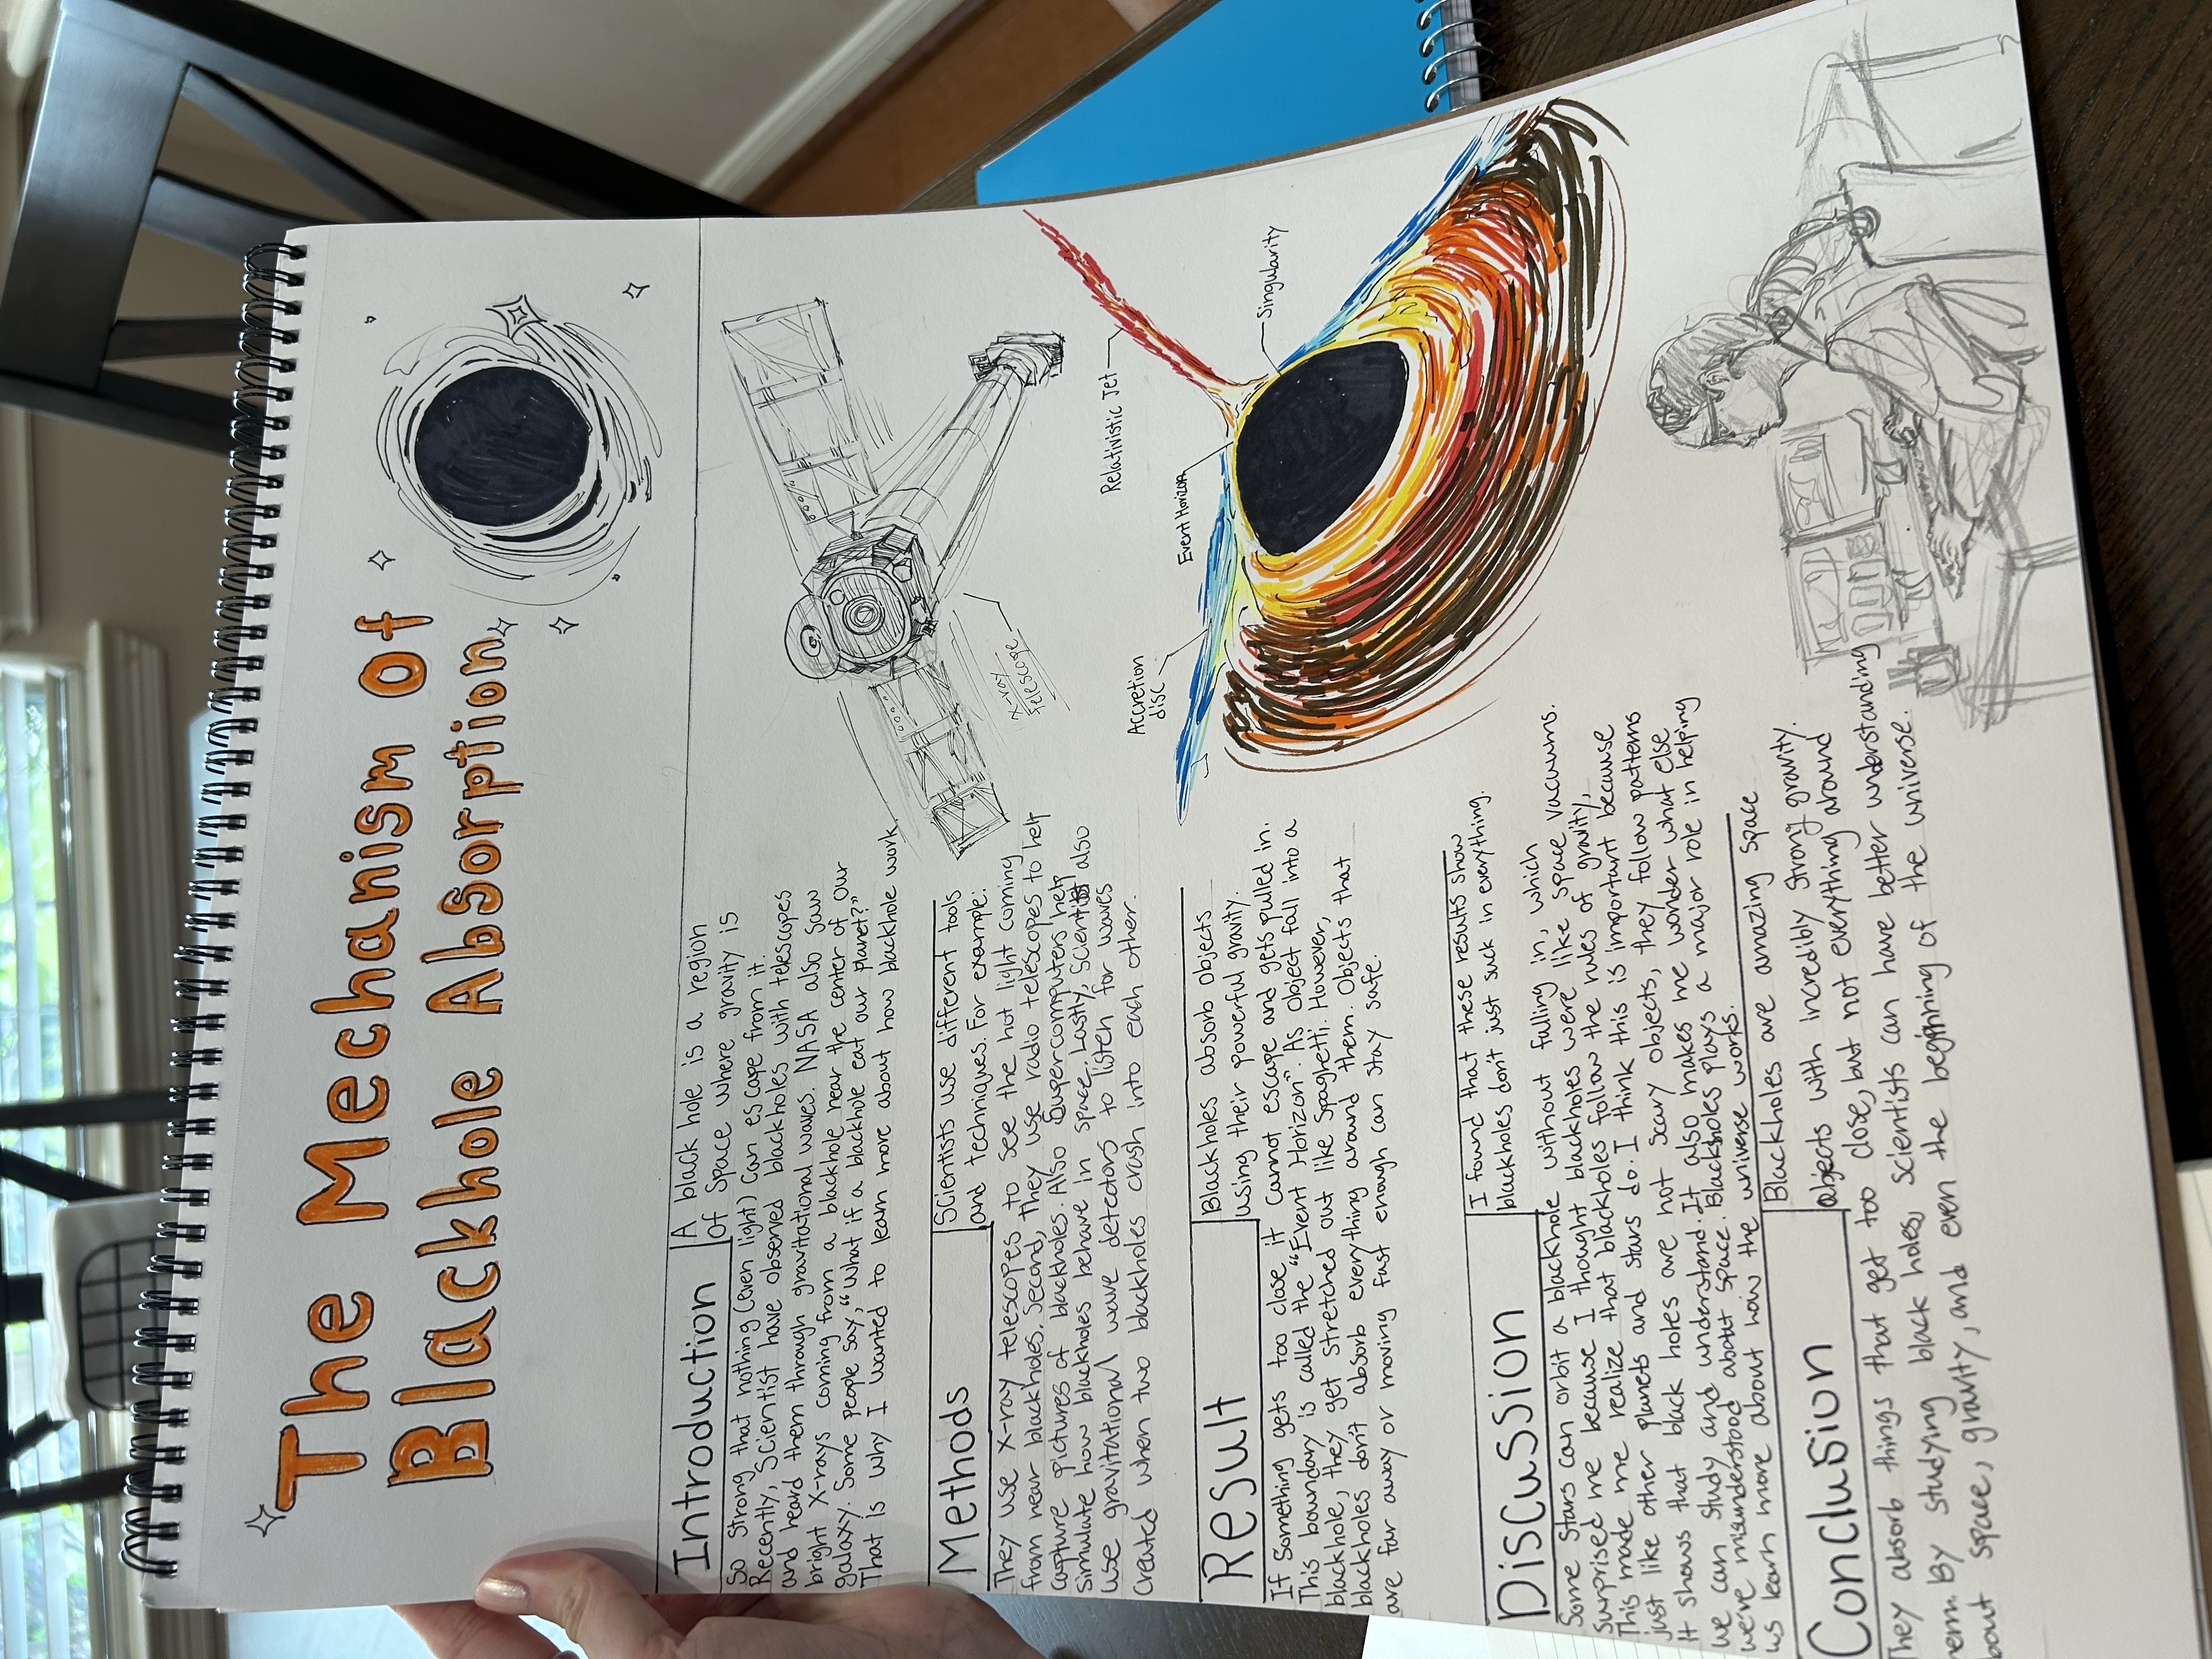 The Mechanism of
Blackhole Absorption
Introduction
A black hole is a region
of Space where gravity is
So strong that nothing (even light) can escape from it.
Recently, Scientist have observed blackholes with telescopes
and heard them through gravitational waves. NASA also saw
bright X-rays coming from a blackhole near the center of our
galaxy. Some people say, "What if a blackhole eat our planet?"
That is why I wanted to learn more about how blackhole work
x-ray
telescope
Methods
Scientists use different tools
and techniques. For example:
They use x-ray telescopes to see the hot light coming
from near blackholes. Second, they use radio telescopes to help
capture pictures of blackholes. Also Supercomputers help
simulate how blackholes behave in space. Lastly, Scientist also
use gravitational wave detectors to listen for waves
Created when two blackholes crash into each other.
Relativistic Jet
Singularity
Event Horizon
Accretion
disc
Result
Blackholes absorb objects
using their powerful gravity.
If Something gets too close, it cannot escape and gets pulled in.
This boundary is called the "Event Horizon". As Object fall into a
blackhole, they get stretched out like Spaghetti. However,
blackholes don't absorb everything around them. Objects that
are far away or moving fast enough can stay safe.
Discussion
I found that these results show
blackholes don't just suck in everything.
Some Stars can orbit a blackhole without falling in, which
Surprised me because I thought blackholes were like space vacuums.
This made me realize that blackholes follow the rules of gravity,
just like other planets and stars do. I think this is important because
It shows that black holes are not scary objects, they follow patterns
we can study and understand. It also makes me wonder what else
we've misunderstood about space. Blackholes plays a major role in helping
us learn more about how the universe works.
Conclusion
Blackholes are amazing space
objects with incredibly strong gravity.
They absorb things that get too close, but not everything around
them. By studying black holes, scientists can have better understanding
about space, gravity, and even the beginning of the universe.